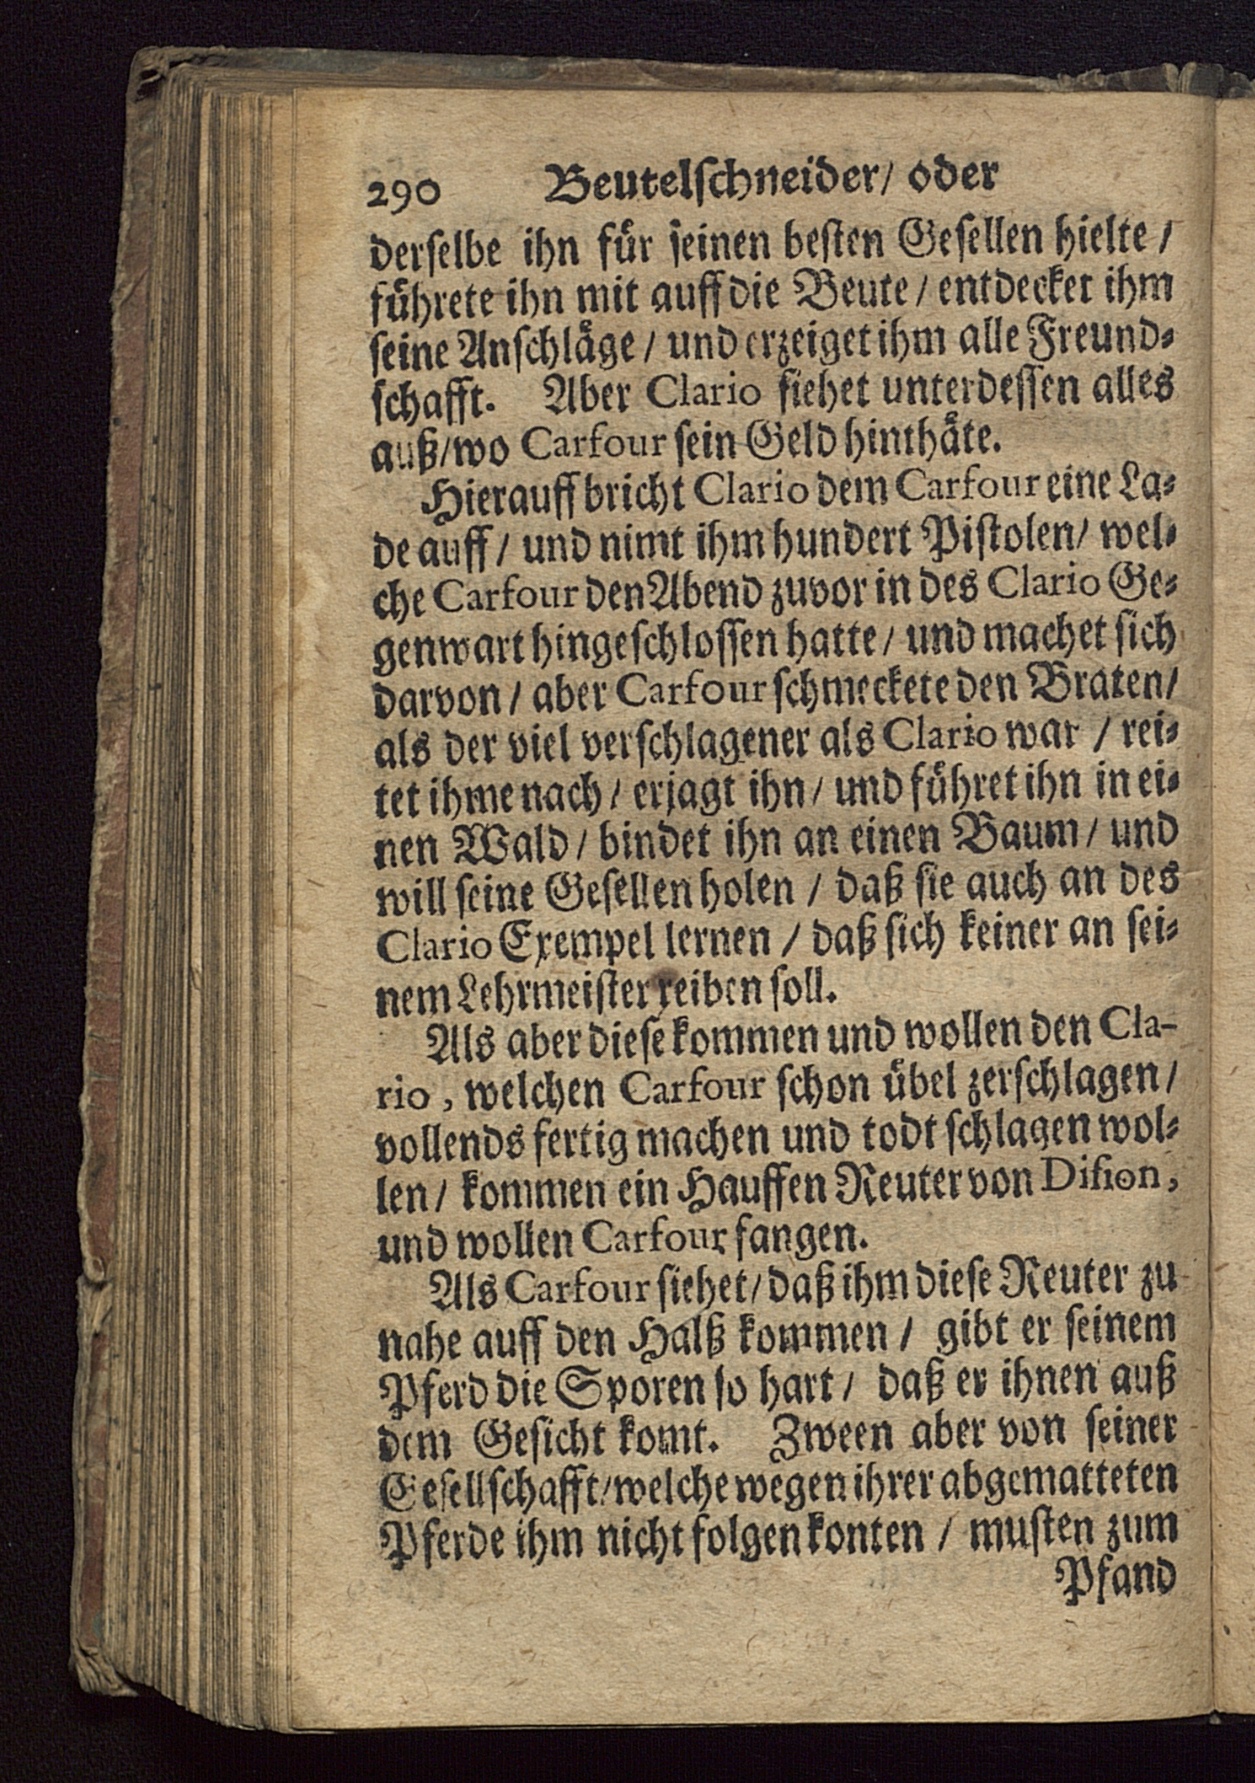 290 Beutelſchneider/ oder
derſelbe ihn fuͤr ſeinen beſten Geſellen hielte /
fuͤhrete ihn mit auff die Beute / entdecket ihm
ſeine Anſchlaͤge / und erzeiget ihm alle Freund⸗
ſchafft. Aber Clario ſiehet unterdeſſen alles
auß/wo Carfour ſein Geld hinthaͤte.
Hierauff bricht Clario dem Carfour eine La⸗
de auff / und nimt ihm hundert Piſtolen/ wel⸗
che Carfour den Abend zuvor in des Clario Ge⸗
genwart hingeſchloſſen hatte / und machet ſich
darvon / aber Carfour ſchmeckete den Braten/
als der viel verſchlagener als Clario war / rei⸗
tet ihme nach / erjagt ihn / und fuͤhret ihn in ei⸗
nen Wald / bindet ihn an einen Baum / und
will ſeine Geſellen holen / daß ſie auch an des
Clario Exempel lernen / daß ſich keiner an ſei⸗
nem Lehrmeiſter reiben ſoll.
Als aber dieſe kommen und wollen den Cla-
rio, welchen Carfour ſchon uͤbel zerſchlagen /
vollends fertig machen und todt ſchlagen wol⸗
len / kommen ein Hauffen Reuter von Diſion,
und wollen Carfour fangen.
Als Carfour ſiehet/ daß ihm dieſe Reuter zu
nahe auff den Halß kommen / gibt er ſeinem
Pferd die Sporen ſo hart / daß er ihnen auß
dem Geſicht komt. Zween aber von ſeiner
Geſellſchafft/welche wegen ihrer abgematteten
Pferde ihm nicht folgen konten / muſten zum
Pfand